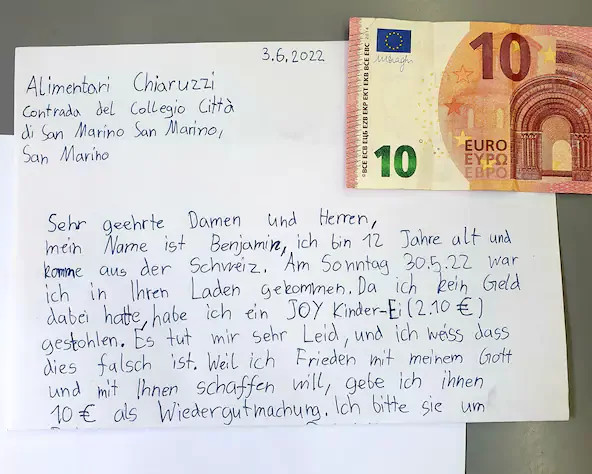 3.6.2022
Alimentari Chiaruzzi
Contrada del Collegio Città
di San Marino San Marino,
San Marino
Sehr geehrte Damen und Herren,
mein Name ist Benjamin, ich bin 12 Jahre alt und
komme aus der Schweiz. Am Sonntag 30.5.22 war
ich in Ihren Laden gekommen. Da ich kein Geld
dabei hatte, habe ich ein JOY Kinder-Ei (2.10 €)
gestohlen. Es tut mir sehr Leid, und ich weiss dass
dies falsch ist. Weil ich Frieden mit meinem Gott
und mit Ihnen schaffen will, gebe ich ihnen
10 € als Wiedergutmachung. Ich bitte sie um
10
10
EURO
ΕΥΡΩ
ЕВРО
BCE ECB ЕЦБ EZB EKP EKT EKB BCE EBC